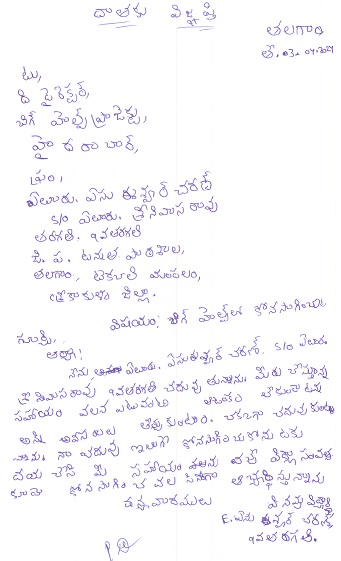 దాతకు విజ్ఞప్తి
తలగాం
తే. 03. 07.2021
టు,
ది డైరెక్టర్,
బిగ్ హెల్ప్ ప్రాజెక్టు,
హైదరాబాద్,
ఫ్రం,
ఏలూరు. ఏసు ఈశ్వర్ చరణ్
S/o ఏలూరు. శ్రీనివాస రావు
తరగతి. 10వతరగతి
జి. ప. ఉన్నత పాఠశాల,
తలగాం, టెక్కలి మండలం,
శ్రీకాకుళం జిల్లా.
విషయం: బిగ్ హెల్ప్‌లో కొనసాగించుట
గురించి..
ఆర్యా!
నేను ఏలూరు. ఏసుఈశ్వర్ చరణ్. S/o ఏలూరు.
శ్రీనివాసరావు 10వతరగతి చదువు తున్నాను. మీరు చేస్తున్న
సహాయం వలన ఎటువంటి ఆటంకం లేకుండా
అన్ని అవసరాలు తీర్చు కుంటూ. చక్కగా చదువు కుంటు
న్నాను. నా చదువు ఇలాగే కొనసాగించుకొను టకు
దయ చేసి మీ సహాయం వచ్చే విద్యా సంవత్స
కూడా కొన సాగించ వల సినదిగా ప్రార్థిస్తు న్నాను
ధన్యవాదములు
ఏసు ఈశ్వర్ చరణ్
10వతరగతి.